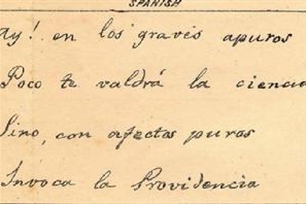 SPANISH
Ay! en los graves apuros
Poco te valdrá la ciencia
Sino, con afectos puros
Invoca la Providencia